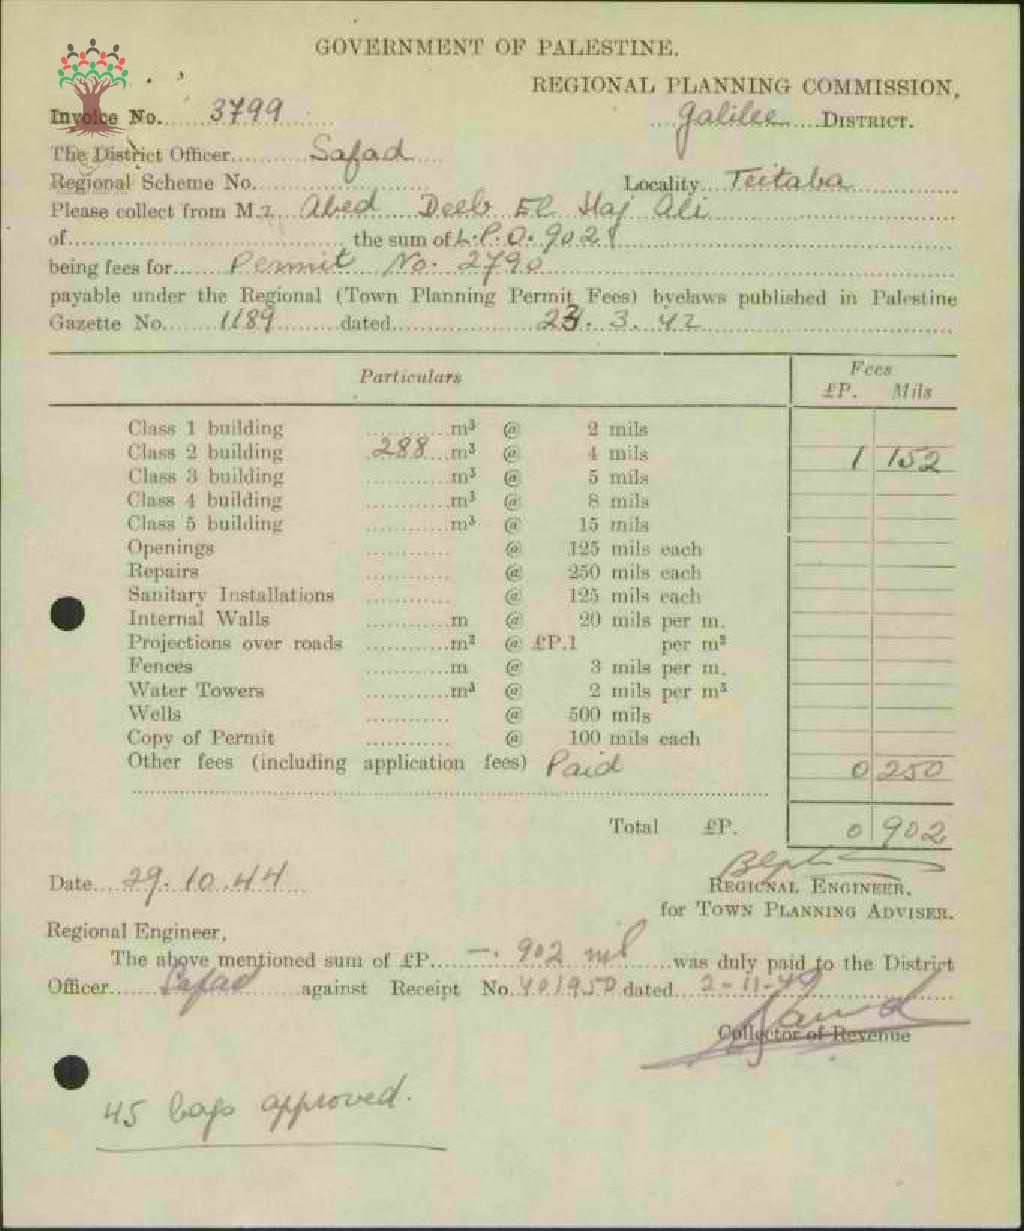 GOVERNMENT OF PALESTINE.
REGIONAL PLANNING COMMISSION,
Invoice No. 3799
Galilee DISTRICT.
The District Officer Safad
Regional Scheme No. Locality Teitaba
Please collect from Mr. Abed Deeb El Haj Ali
of the sum of L.P.0.902
being fees for Permit No. 2790
payable under the Regional (Town Planning Permit Fees) byelaws published in Palestine
Gazette No. 1189 dated 23. 3. 42
Particulars Fees
£P. Mils
Class 1 building m³ @ 2 mils
Class 2 building 288 m³ @ 4 mils 1 152
Class 3 building m³ @ 5 mils
Class 4 building m³ @ 8 mils
Class 5 building m³ @ 15 mils
Openings @ 125 mils each
Repairs @ 250 mils each
Sanitary Installations @ 125 mils each
Internal Walls m @ 20 mils per m.
Projections over roads m³ @ £P.1 per m³
Fences m @ 3 mils per m.
Water Towers m³ @ 2 mils per m³
Wells @ 500 mils
Copy of Permit @ 100 mils each
Other fees (including application fees) Paid 0 250
Total £P. 0 902
Date 29.10.44
REGIONAL ENGINEER,
for TOWN PLANNING ADVISER.
Regional Engineer,
The above mentioned sum of £P. —. 902 mil was duly paid to the District
Officer Safad against Receipt No. 401950 dated 2-11-44
Collector of Revenue
45 bags approved.